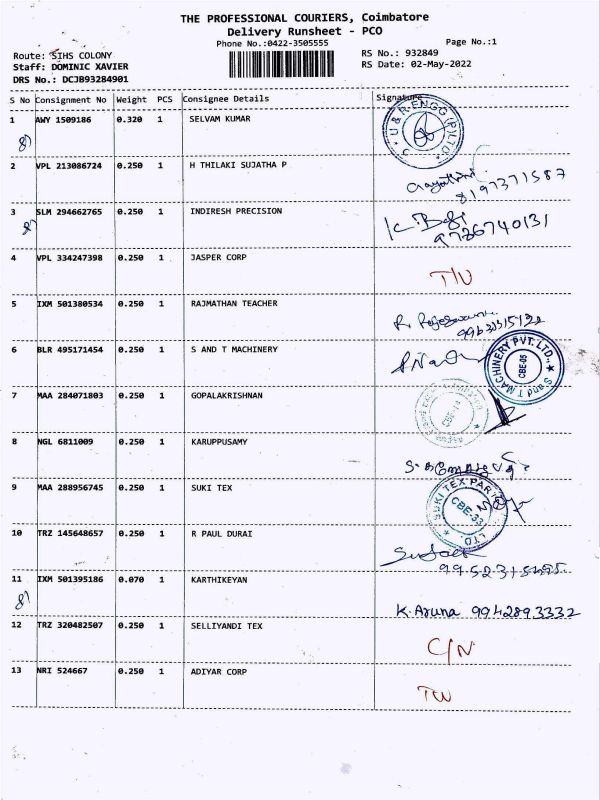 THE PROFESSIONAL COURIERS, Coimbatore
Delivery Runsheet - PCO
Phone No.:0422-3505555
Page No.:1
Route: SIHS COLONY
RS No.: 932849
Staff: DOMINIC XAVIER
RS Date: 02-May-2022
DRS No.: DCJB93284901
S No Consignment No Weight PCS Consignee Details Signature
1 AWY 1509186 0.320 1 SELVAM KUMAR
U & R ENGG (P) LTD
2 VPL 213086724 0.250 1 H THILAKI SUJATHA P
8197371587
3 SLM 294662765 0.250 1 INDIRESH PRECISION
9786740131
4 VPL 334247398 0.250 1 JASPER CORP
5 IXM 501380534 0.250 1 RAJMATHAN TEACHER
R. Rajeswari
6 BLR 495171454 0.250 1 S AND T MACHINERY
S and T MACHINERY PVT. LTD.,
CBE-05
7 MAA 284071803 0.250 1 GOPALAKRISHNAN
CBE-14
8 NGL 6811009 0.250 1 KARUPPUSAMY
9 MAA 288956745 0.250 1 SUKI TEX
SUKI TEX PAR LTD.
CBE-33
10 TRZ 145648657 0.250 1 R PAUL DURAI
11 IXM 501395186 0.070 1 KARTHIKEYAN
K. Aruna 9942893332
12 TRZ 320482507 0.250 1 SELLIYANDI TEX
C/N
13 NRI 524667 0.250 1 ADIYAR CORP